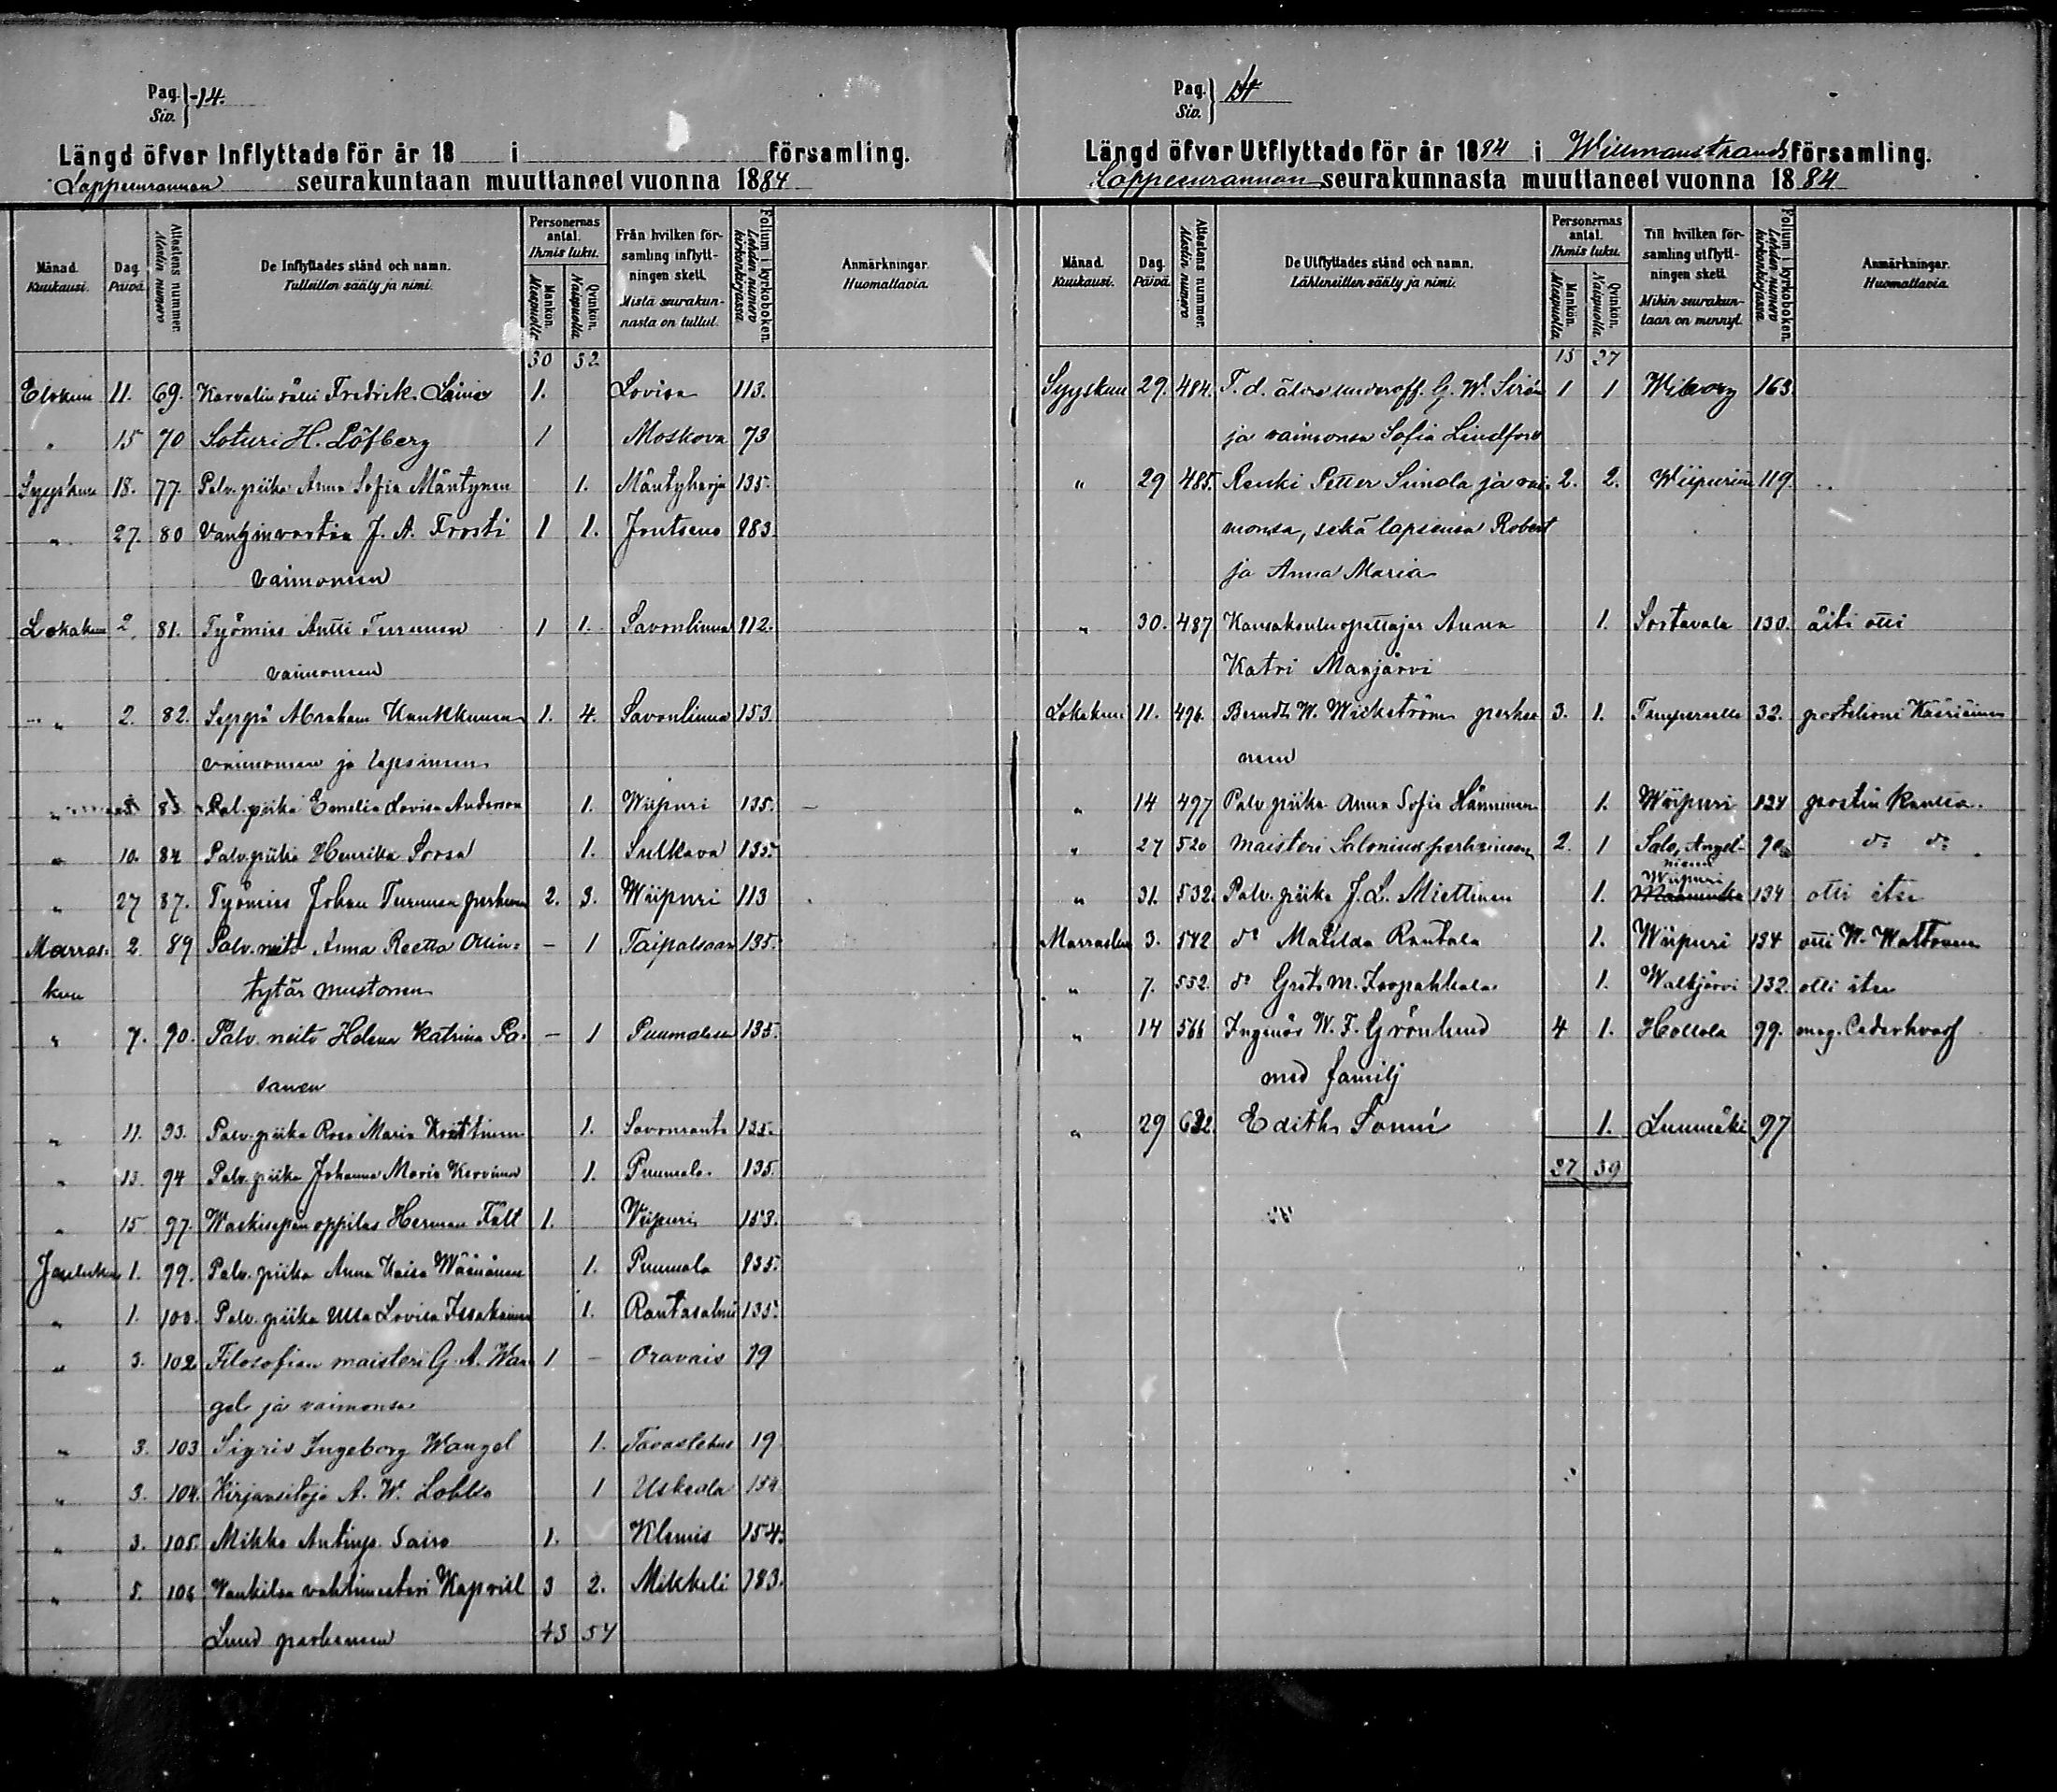 Pag. Siv. } 14.
Längd öfver Inflyttade för år 18 i församling.
Lappeenrannan seurakuntaan muuttaneet vuonna 1884
Månad. Kuukausi.
Dag. Päivä.
Attestens nummer. Atestin numero
De Inflyttades stånd och namn. Tulleitten sääty ja nimi.
Personernas antal. Ihmis luku.
Mankön. Miespuolia.
Qvinkön. Naispuolia.
Från hvilken församling inflyttningen skett. Mistä seurakunnasta on tullut.
Folium i kyrkoboken. Lehden numero kirkonkirjassa
Anmärkningar. Huomattavia.
30 52
Elokuu 11. 69. Karvalin sälli Fredrik Lainer 1. Lovisa 113.
" 15 70 Soturi H. Löfberg 1 Moskova 73
Syyskuu 18. 77. Palv. piika Anna Sofia Mäntynen 1. Mäntyharju 135.
" 27. 80 Vanginvartia J. A. Frosti 1 1. Joutseno 183.
vaimoneen
Lokakuu 2. 81. Työmies Antti Turunen 1 1. Savonlinna 112.
vaimoneen
" 2. 82. Seppä Abraham Kaukkunen 1. 4. Savonlinna 153.
vaimoneen ja lapsineen
" 83. Pal. piika Emelia Lovisa Anderson 1. Wiipuri 135.
" 10. 84 Palv. piika Henrika Sorsa 1. Sulkava 135.
" 27 87. Työmies Johan Turunen perheineen 2. 3. Wiipuri 113
Marras- 2. 89 Palv. neito Anna Reetta Ollin- – 1 Taipalsaari 135.
kuu tytär Mustonen
" 7. 90. Palv. neito Helena Katrina Pa- – 1 Puumalasta 135.
sanen
" 11. 93. Palv. piika Rosa Maria 1. Savonranta 135.
" 13. 94 Palv. piika Johanna Maria Kervinen 1. Puumala 135.
" 15 97. Waskisepän oppilas Herman Fält 1. Viipuri 153.
Joulukuu 1. 99. Palv. piika Anna Kaisa Wäänänen 1. Puumala 135.
" 1. 100. Palv. piika Ulla Lovisa Issakainen 1. Rantasalmi 135.
" 3. 102 Filosofian maisteri G. A. Wan- 1 – Oravais 19
gel ja vaimonsa
" 3. 103 Sigrid Ingeborg Wangel 1. Tavastehus 19
" 3. 104. Kirjansitoja A. W. 1 Uskela 154
" 3. 105. Mikko Antinp. Sairo 1. Klemis 154.
" 5. 106 Vankilan vahtimestari Kapriel 3 2. Mikkeli 183.
Lund perheineen 43 54
Pag. Siv. } 14
Längd öfver Utflyttade för år 1884 i Willmanstrands församling.
Lappeenrannan seurakunnasta muuttaneet vuonna 1884
Månad. Kuukausi.
Dag. Päivä.
Attestens nummer. Atestin numero
De Utflyttades stånd och namn. Lähteneitten sääty ja nimi.
Personernas antal. Ihmis luku.
Mankön. Miespuolia.
Qvinkön. Naispuolia.
Till hvilken församling utflyttningen skett. Mihin seurakuntaan on mennyt.
Folium i kyrkoboken. Lehden numero kirkonkirjassa
Anmärkningar. Huomattavia.
15 27
Syyskuu 29. 484. F. d. äldre underoff. G. W. Sirén 1 1 Wiborg 163.
ja vaimonsa Sofia Lindfors
" 29 485. Renki Petter Sinola ja vai- 2. 2. Wiipuriin 119.
monsa, sekä lapsensa Robert
ja Anna Maria
" 30. 487 Kansakoulu opettaja Anna 1. Sortavala 130. äiti otti
Katri Manjärvi
Lokakuu 11. 496. Berndt W. Wickström perhei- 3. 1. Tampereelle 32. postelioni Kääriäinen
neen
" 14 497 Palv. piika Anna Sofia Hänninen 1. Wiipuri 124 postin kautta.
" 27 520 Maisteri Salonius perheineen 2. 1 Salo, Angel- niemi 90 d:o d:o
" 31. 532. Palv. piika J. L. Miettinen 1. Wiipuri 134 otti itse
Marraskuu 3. 542 d:o Matilda Rantala 1. Wiipuri 134 otti W. Wattonen
" 7. 552. d:o Greta M. Koopakkala 1. Walkjärvi 132. otti itse
" 14 566 Ingeniör W. F. Grönlund 4 1. Hollola 99. mag. Cederhvarf
med familj
" 29 632. Edith Somni 1. Luumäki 97
27 39